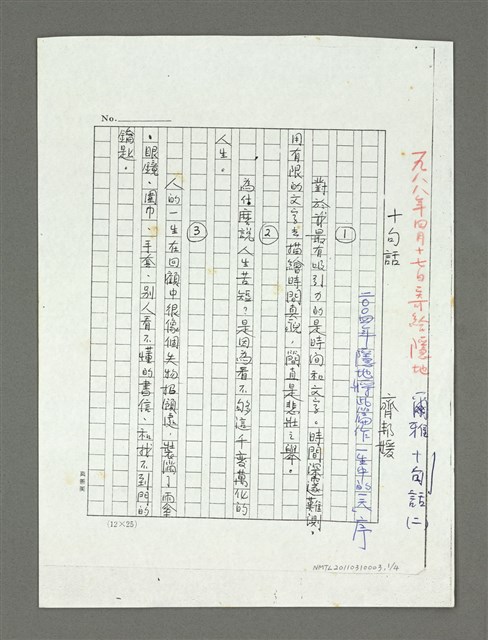 一九八八年四月十七日寄給隱地(爾雅十句話(二)
十句話
齊邦媛
二〇〇四年隱地將此篇作「一生中的一天」序
①
對於我最有吸引力的是時間和文字。時間深邃難測,
用有限的文字去描繪時間真貌,簡直是悲壯之舉。
②
為什麼說人生苦短?是因為看不夠這千變萬化的
人生。
③
人的一生在回顧中很像個失物招領處,裝滿了雨傘
、眼鏡、圍巾、手套、別人看不懂的書信、和找不到門的
鑰匙。
No.
(12×25)
NMTL20110310003, 1/4